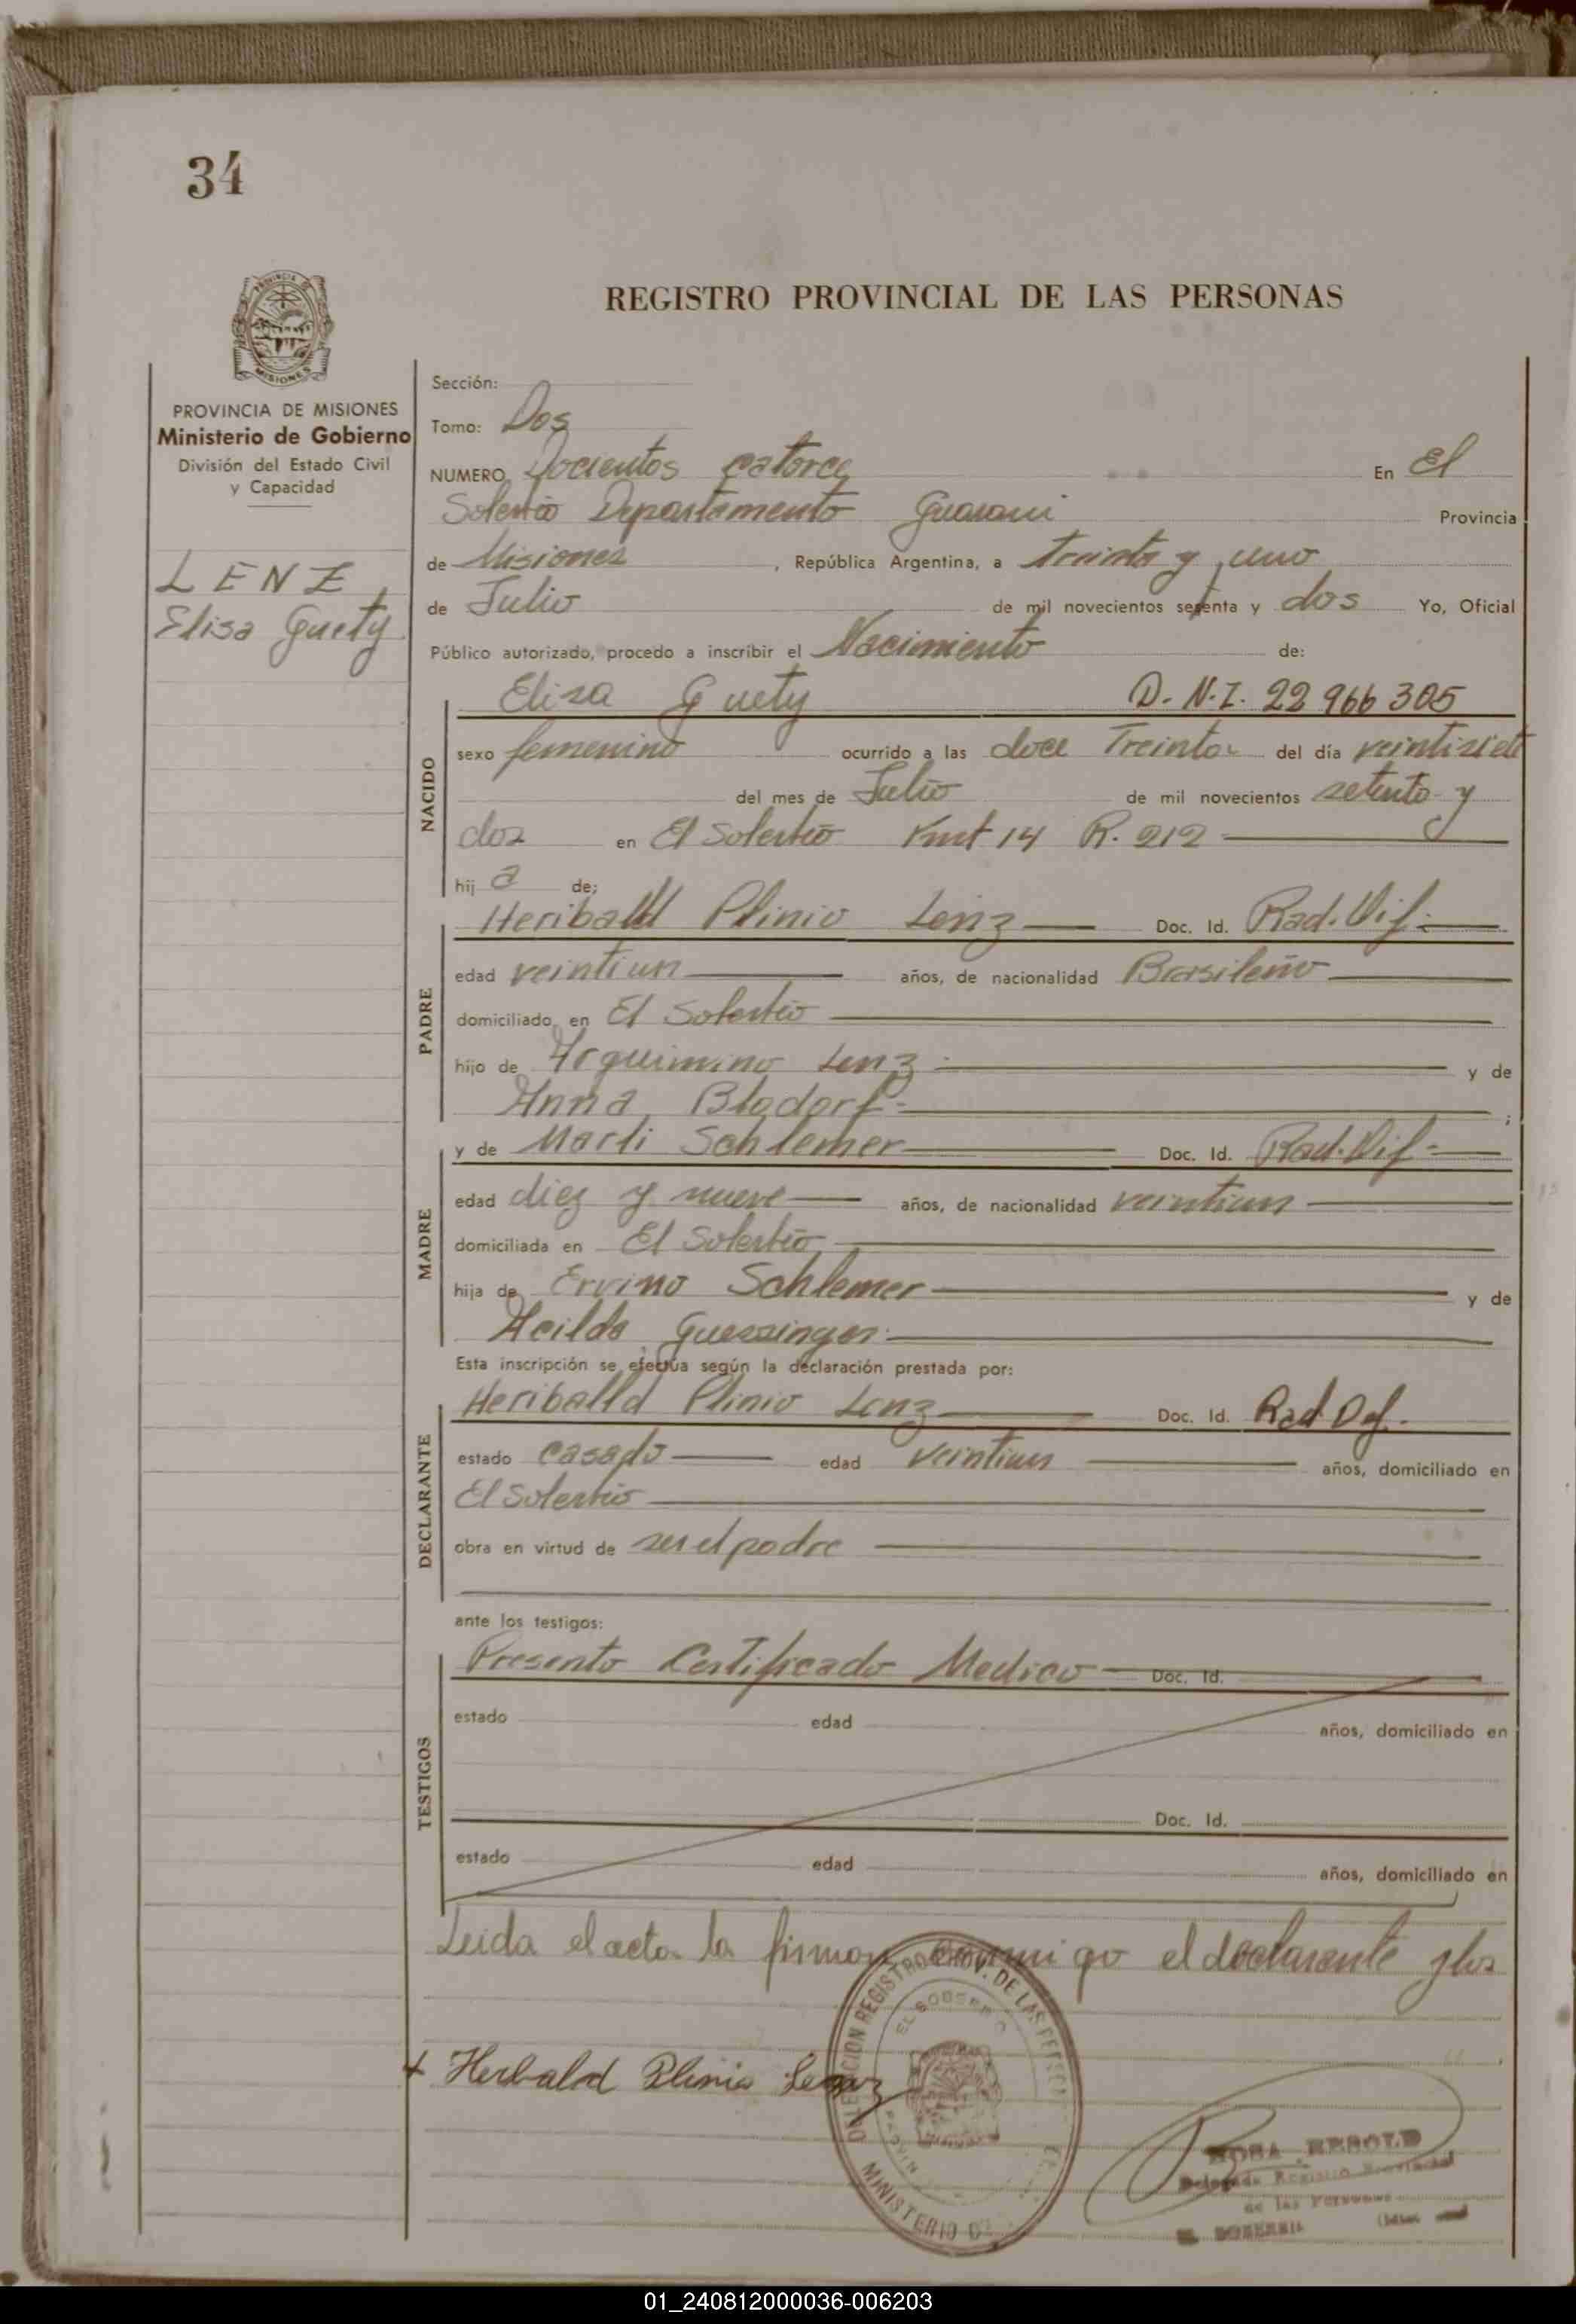 34
REGISTRO PROVINCIAL DE LAS PERSONAS
PROVINCIA DE MISIONES
Ministerio de Gobierno
División del Estado Civil
y Capacidad
LENZ
Elisa Guety
Sección:
Tomo: Dos
NUMERO Docientos catorce En El
Soberbio Departamento Guarani Provincia
de Misiones, República Argentina, a treinta y uno
de Julio de mil novecientos setenta y dos Yo, Oficial
Público autorizado, procedo a inscribir el Nacimiento de:
NACIDO
Elisa Guety D.N.I. 22 966 305
sexo femenino ocurrido a las doce Treinta del día veintisiete
del mes de Julio de mil novecientos setenta y
dos en El Soberbio Kmt 14 R. 212
hij a de;
PADRE
Heribald Plinio Lenz Doc. Id. Rad. Dif.
edad veintiun años, de nacionalidad Brasileño
domiciliado en El Soberbio
hijo de Arquimino Lenz y de
Anna Blodorf ;
MADRE
y de Marli Schlemer Doc. Id. Rad. Dif
edad diez y nueve años, de nacionalidad veintiun
domiciliada en El Soberbio
hija de Ervino Schlemer y de
Acilda
Esta inscripción se efectúa según la declaración prestada por:
DECLARANTE
Heriballd Plinio Lenz Doc. Id. Rad
estado casado edad veintiun años, domiciliado en
El Soberbio
obra en virtud de ser el padre
ante los testigos:
TESTIGOS
Presento Certificado Medico Doc. Id.
estado edad años, domiciliado en
Doc. Id.
estado edad años, domiciliado en
Leida el acta la firman conmigo el declarante y los
Herbald Plinio Lenz
DELEGACION REGISTRO PROV. DE LAS PERSON
EL SOBERBIO
MINISTERIO DE
ROSA
Delegada Registro Provincial
de las Personas
EL SOBERBIO
01_240812000036-006203